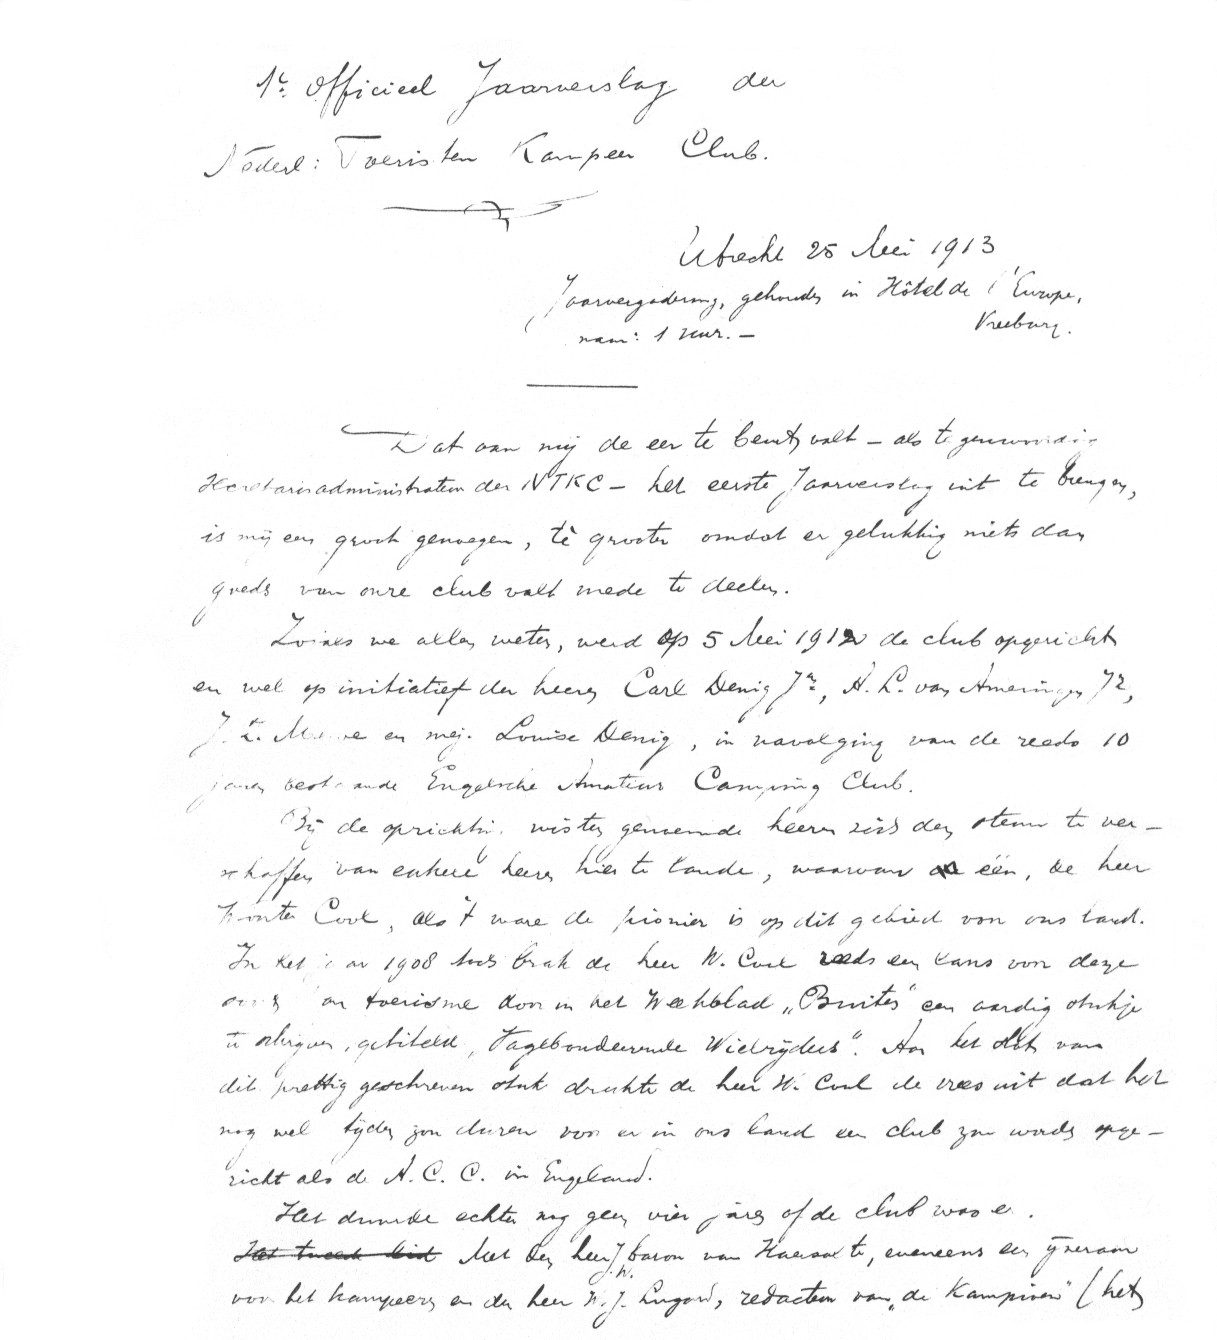 1e Officieel Jaarverslag der
Nederl: Toeristen Kampeer Club.
Utrecht 25 Mei 1913
Jaarvergadering, gehouden in Hôtel de l'Europe,
Vreeburg.
nam: 1 uur. —
Dat aan mij de eer te beurt valt – als tegenwoordig
Secretarisadministrateur der NTKC – het eerste Jaarverslag uit te brengen,
is mij een groot genoegen, te grooter omdat er gelukkig niets dan
goeds van onze club valt mede te deelen.
Zooals we allen weten, werd op 5 Mei 1912 de club opgericht
en wel op initiatief der heeren Carl Denig Jr, H. L. van Ameringen Jr,
J. en mej. Louise Denig, in navolging van de reeds 10
jaren bestaande Engelsche Amateur Camping Club.
Bij de oprichting wisten genoemde heeren zich den steun te ver–
schaffen van enkele heeren hier te lande, waarvan één, de heer
Cool, als 't ware de pionier is op dit gebied van ons land.
In het jaar 1908 toch brak de heer W. Cool reeds een lans voor deze
toerisme door in het Weekblad „Buiten" een aardig stukje
te schrijven, getiteld „Vagebondeerende Wielrijders". Aan het slot van
dit prettig geschreven stuk drukte de heer W. Cool de vrees uit dat het
nog wel tijden zou duren voor er in ons land een club zou worden opge–
richt als de A. C. C. in Engeland.
Het duurde echter nog geen vier jaren of de club was er.
Met den heer J. W. baron van Haersolte, eveneens een ijveraar
voor het kampeeren en den heer W. J. Lugard, redacteur van „de Kampioen" (het